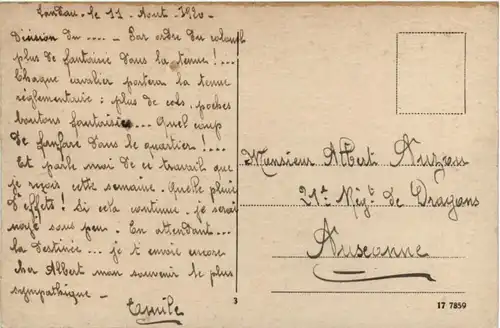 Landau. le 11 Août 1920
Décision du .... - Par ordre du colonel
plus de fantaisie dans la tenue!...
Chaque cavalier portera la tenue
réglementaire: plus de cols, poches
boutons fantaisies... Quel coup
de fanfare dans le quartier!...
Et parle moi de ce travail que
je reçois cette semaine. Quelle pluie
d'effets! Si cela continue. je serai
noyé sous peu. En attendant...
la destinée... je t'envoie encore
cher Albert mon souvenir le plus
sympathique -
Emile
Monsieur Albert
21e Régt de Dragons
3
17 7859